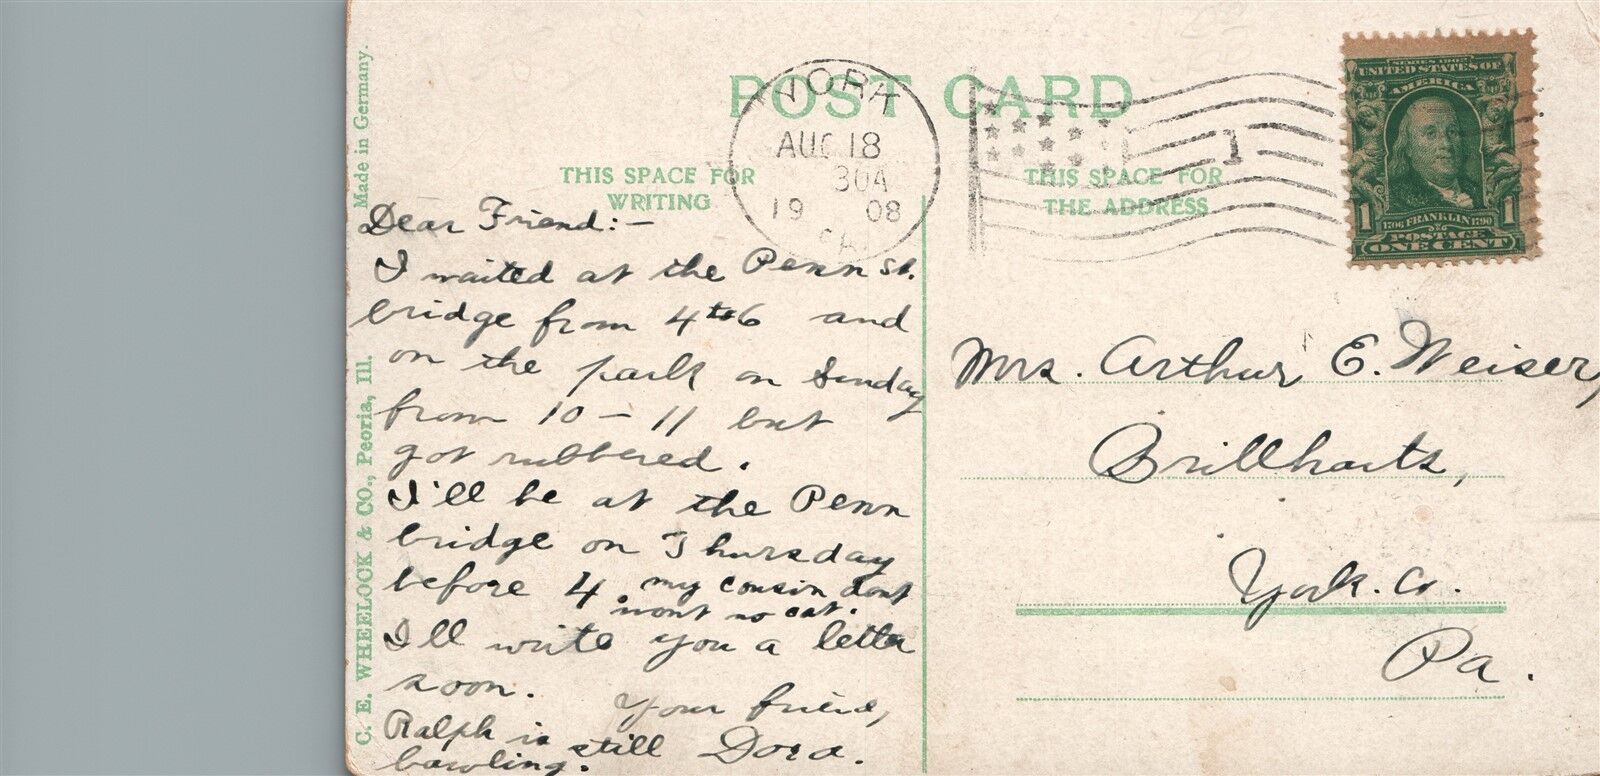 POST CARD
THIS SPACE FOR
WRITING
THIS SPACE FOR
THE ADDRESS
Made in Germany.
C. E. WHEELOCK & CO., Peoria, Ill.
YORK
AUG 18
30A
19 08
PA.
1
SERIES 1902
UNITED STATES OF
AMERICA
1706 FRANKLIN 1790
1 POSTAGE 1
ONE CENT
Dear Friend:-
I waited at the Penn St.
bridge from 4 to 6 and
on the park on Sunday
from 10 - 11 but
got rubbered.
I'll be at the Penn
bridge on Thursday
before 4. my cousin dont
wont no cat.
I'll write you a letter
soon.
Your friend,
Dora.
Ralph is still
bawling.
Mrs. Arthur E. Weiser,
Brillharts,
York. Co.
Pa.